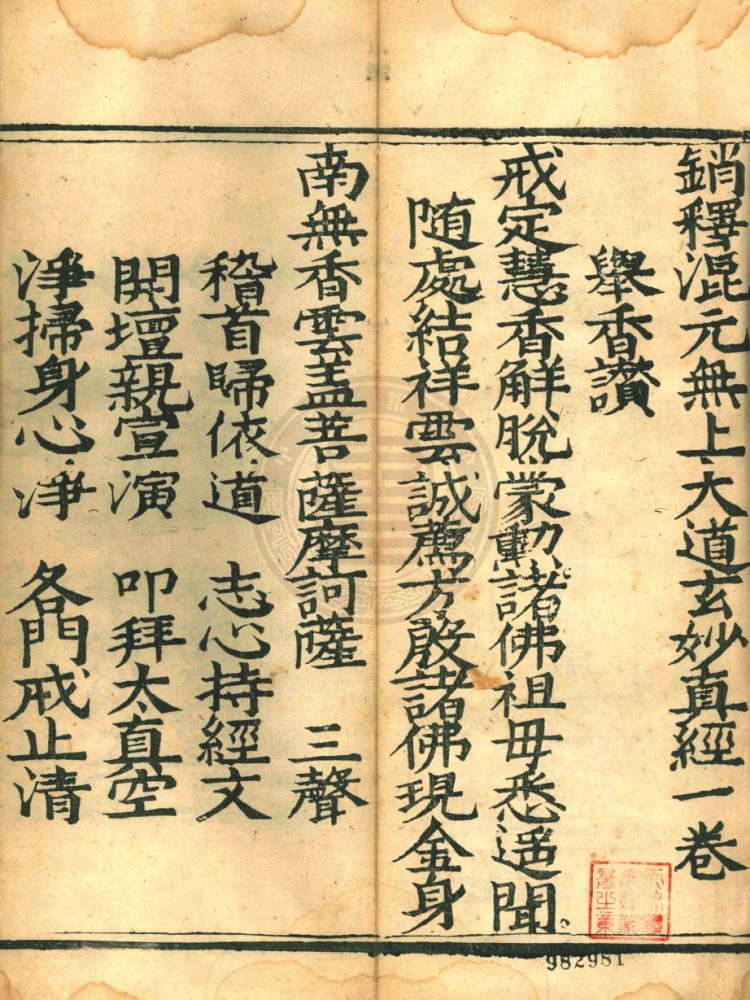 銷釋混元無上大道玄妙真經一卷
舉香讚
戒定慧香解脫蒙勳諸佛祖毋悉遥聞。
随處結祥雲誠薦方殷諸佛現金身
南無香雲盖菩薩摩訶薩　三聲
稽首歸依道　志心持經文
開壇親宣演　叩拜太真空
淨掃身心淨　各門戒止清
982981